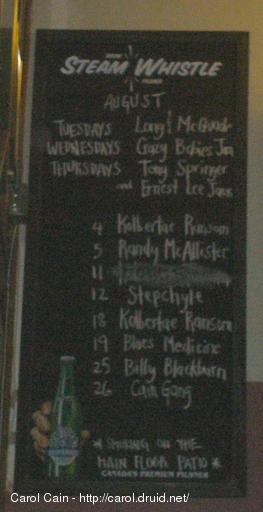 STEAM WHISTLE
PILSNER
AUGUST
TUESDAYS Long & McQuade
WEDNESDAYS Crazy Babies Jam
THURSDAYS Tony Springer
and Ernest Lee Jam
4 Kolbertae Ransom
5 Randy McAllister
11
12 Stepchyle
18 Kolbertae Ransom
19 Blues Medicine
25 Billy Blackburn
26 Cain Gang
* SMOKING ON THE
MAIN FLOOR PATIO *
CANADA'S PREMIUM PILSNER
Carol Cain - http://carol.druid.net/